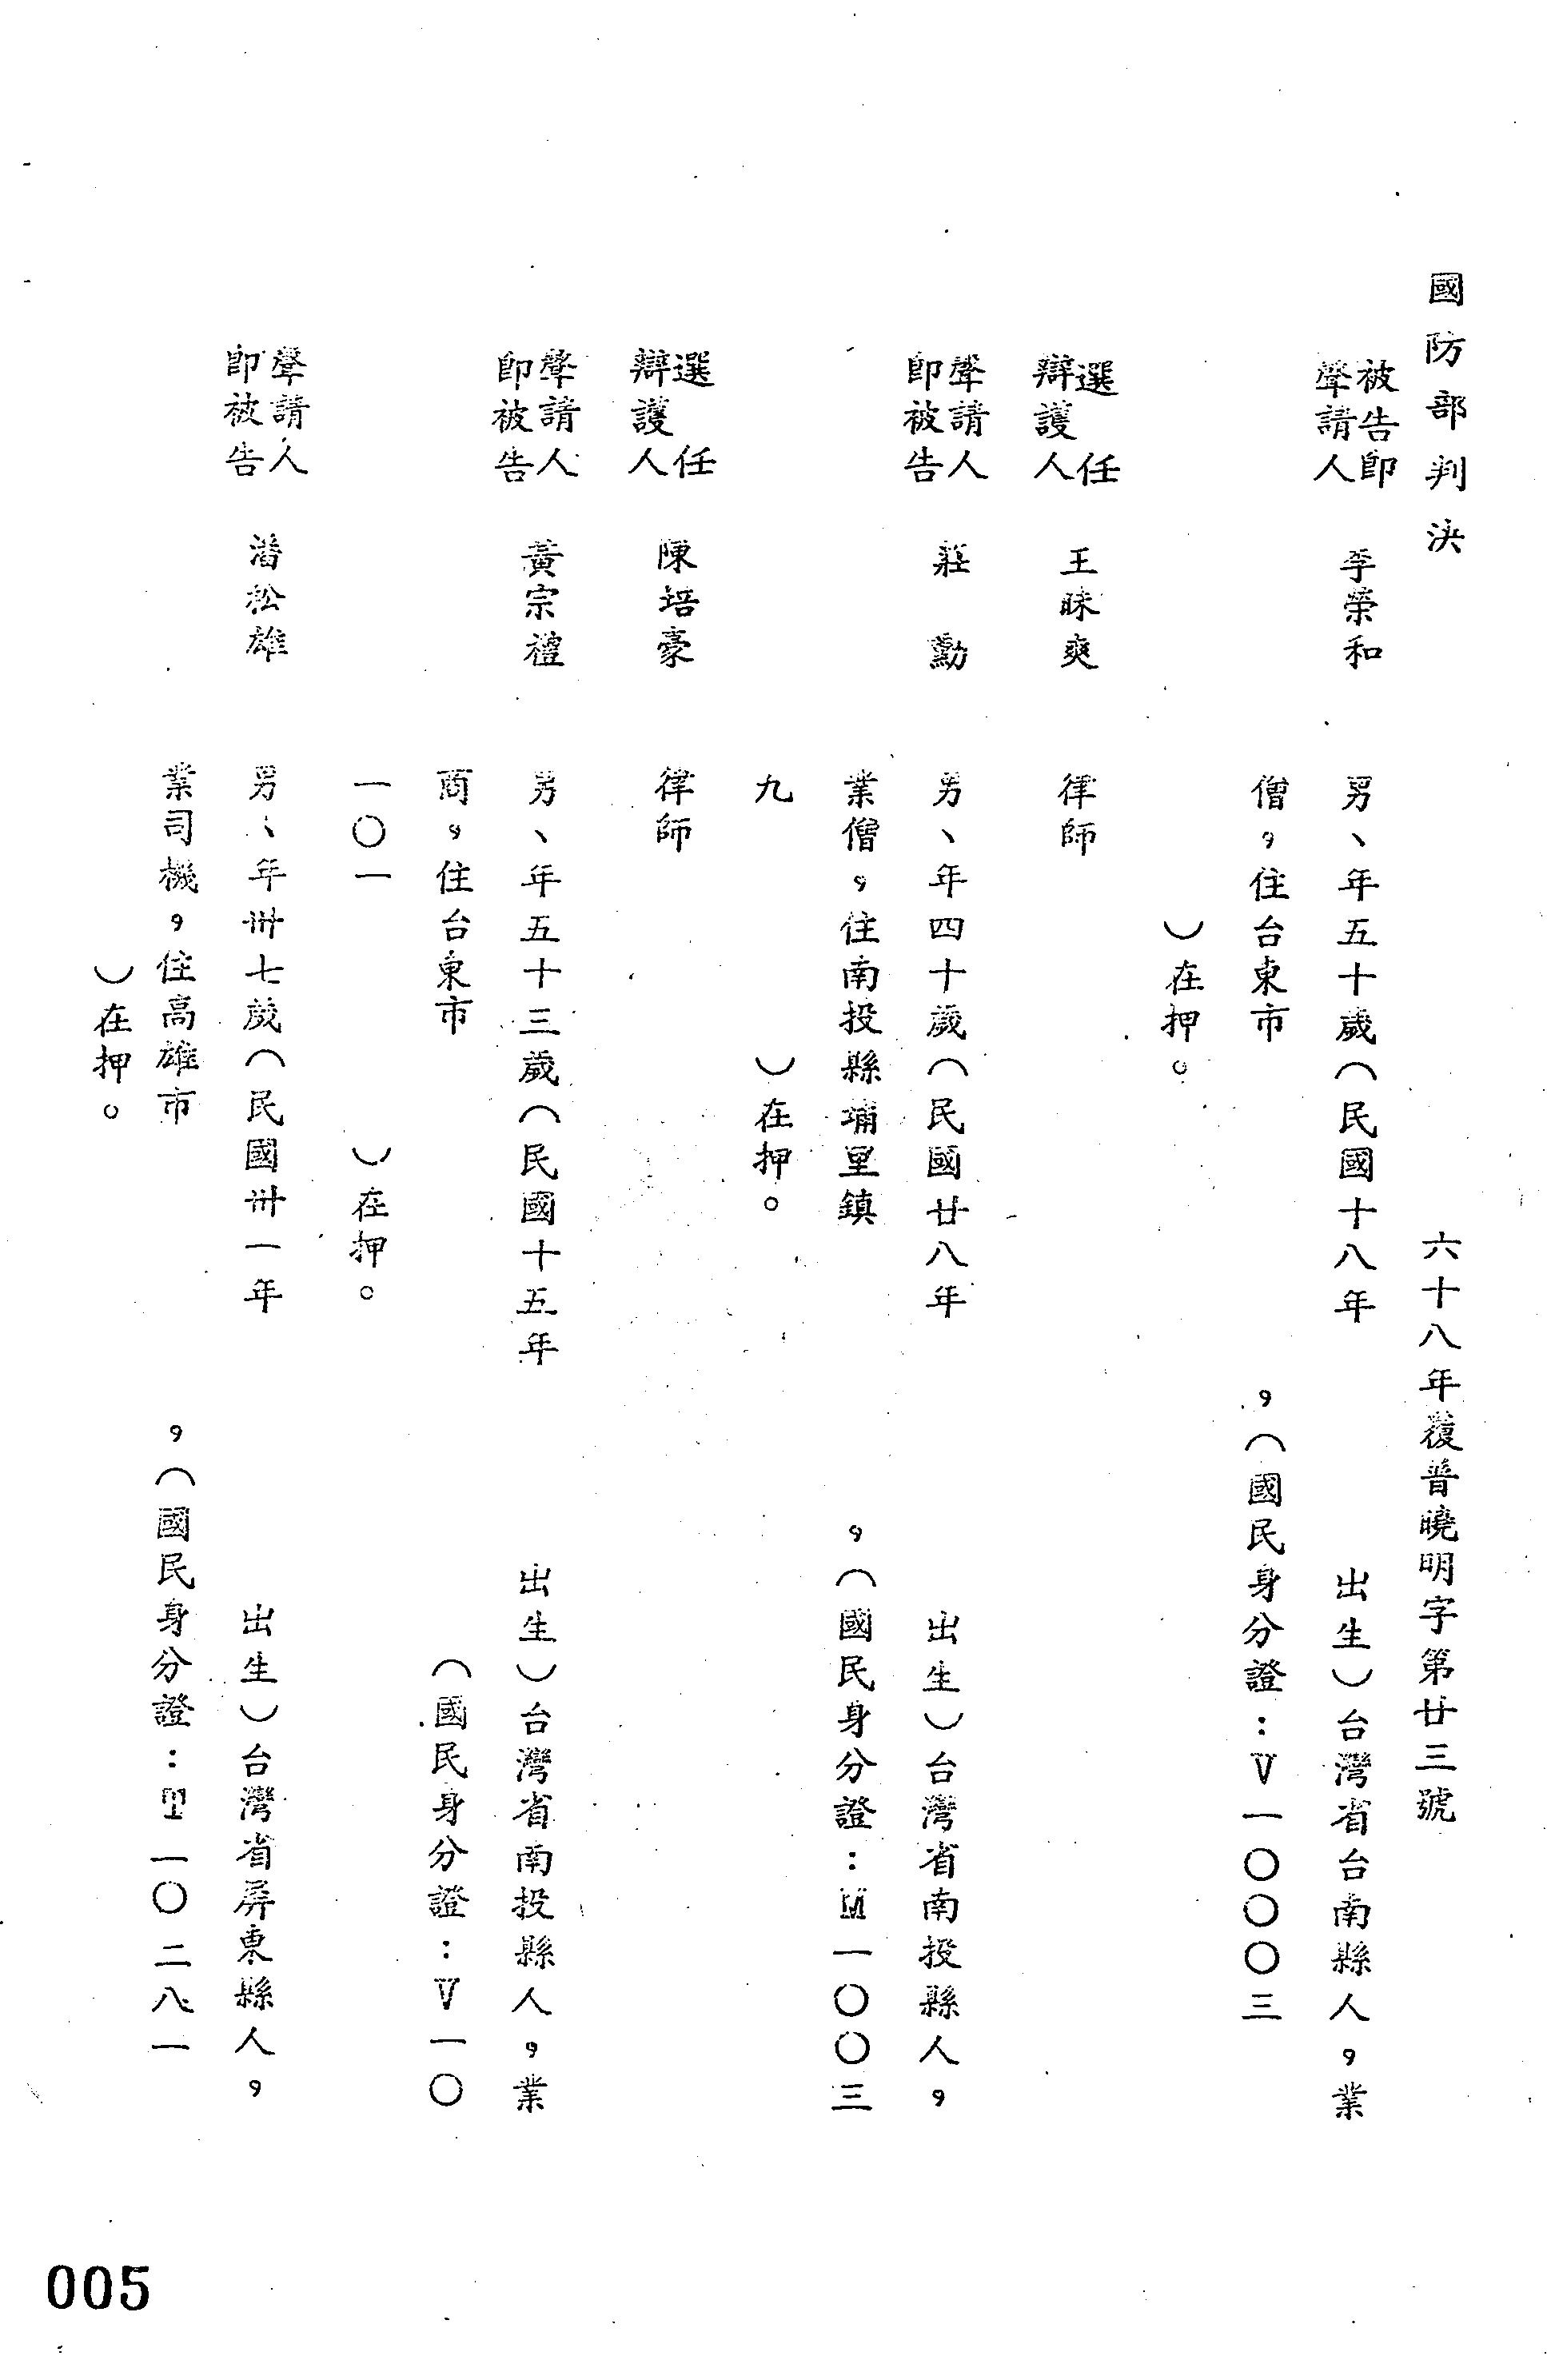 國防部判決　六十八年覆普曉明字第廿三號
被告即聲請人　李榮和　男、年五十歲（民國十八年　出生）台灣省台南縣人，業
僧，住台東市　，（國民身分證：V一〇〇〇三
）在押。
選任辯護人　王昧爽　律師
聲請人即被告　莊勳　男、年四十歲（民國廿八年　出生）台灣省南投縣人，
業僧，住南投縣埔里鎮　，（國民身分證：M一〇〇三
九　）在押。
選任辯護人　陳培豪　律師
聲請人即被告　黃宗禮　男、年五十三歲（民國十五年　出生）台灣省南投縣人，業
商，住台東市　（國民身分證：V一〇
一〇一　）在押。
聲請人即被告　潘松雄　男、年卅七歲（民國卅一年　出生）台灣省屏東縣人，
業司機，住高雄市　，（國民身分證：T一〇二八一
）在押。
005